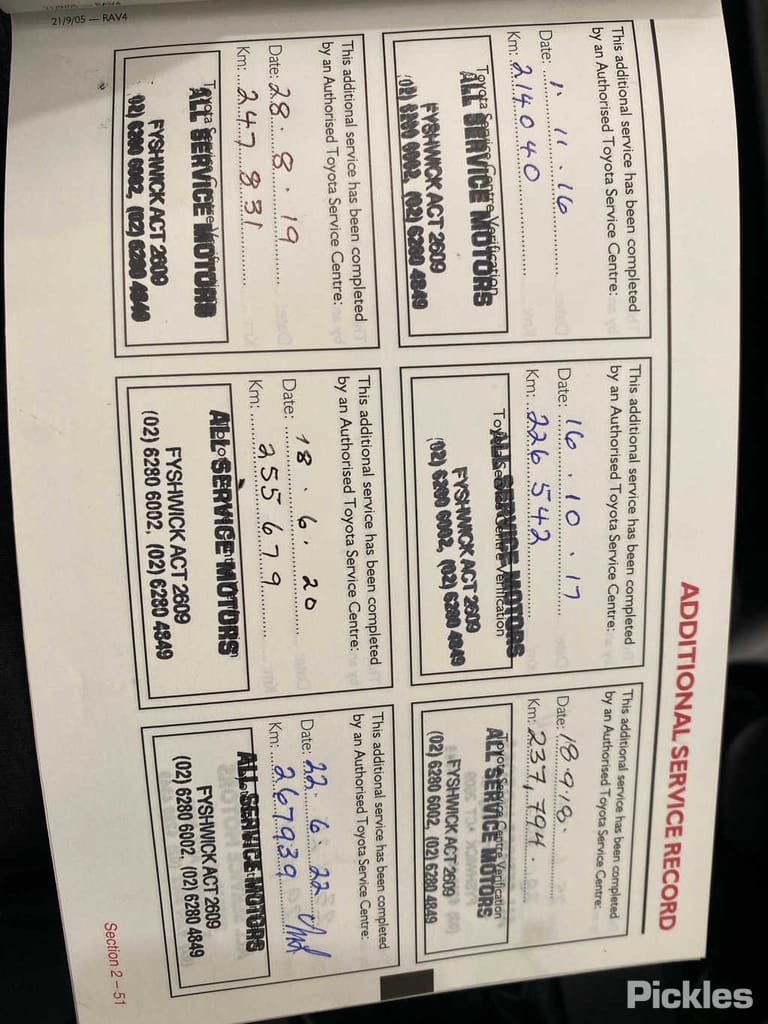 ADDITIONAL SERVICE RECORD
This additional service has been completed
by an Authorised Toyota Service Centre:
Date: 1 · 11 · 16
Km: 214040
Toyota Service Centre Verification
ALL SERVICE MOTORS
FYSHWICK ACT 2609
(02) 6280 6002, (02) 6280 4849
This additional service has been completed
by an Authorised Toyota Service Centre:
Date: 16 · 10 · 17
Km: 226 542
Toyota Service Centre Verification
ALL SERVICE MOTORS
FYSHWICK ACT 2609
(02) 6280 6002, (02) 6280 4849
This additional service has been completed
by an Authorised Toyota Service Centre:
Date: 18·9·18·
Km: 237,794·
Toyota Service Centre Verification
ALL SERVICE MOTORS
FYSHWICK ACT 2609
(02) 6280 6002, (02) 6280 4849
This additional service has been completed
by an Authorised Toyota Service Centre:
Date: 28 · 8 · 19
Km: 247 831
Toyota Service Centre Verification
ALL SERVICE MOTORS
FYSHWICK ACT 2609
(02) 6280 6002, (02) 6280 4849
This additional service has been completed
by an Authorised Toyota Service Centre:
Date: 18 · 6 · 20
Km: 255 679
ALL SERVICE MOTORS
FYSHWICK ACT 2609
(02) 6280 6002, (02) 6280 4849
This additional service has been completed
by an Authorised Toyota Service Centre:
Date: 22 · 6 · 22
Km: 267939
ALL SERVICE MOTORS
FYSHWICK ACT 2609
(02) 6280 6002, (02) 6280 4849
Section 2 – 51
21/9/05 — RAV4
Pickles